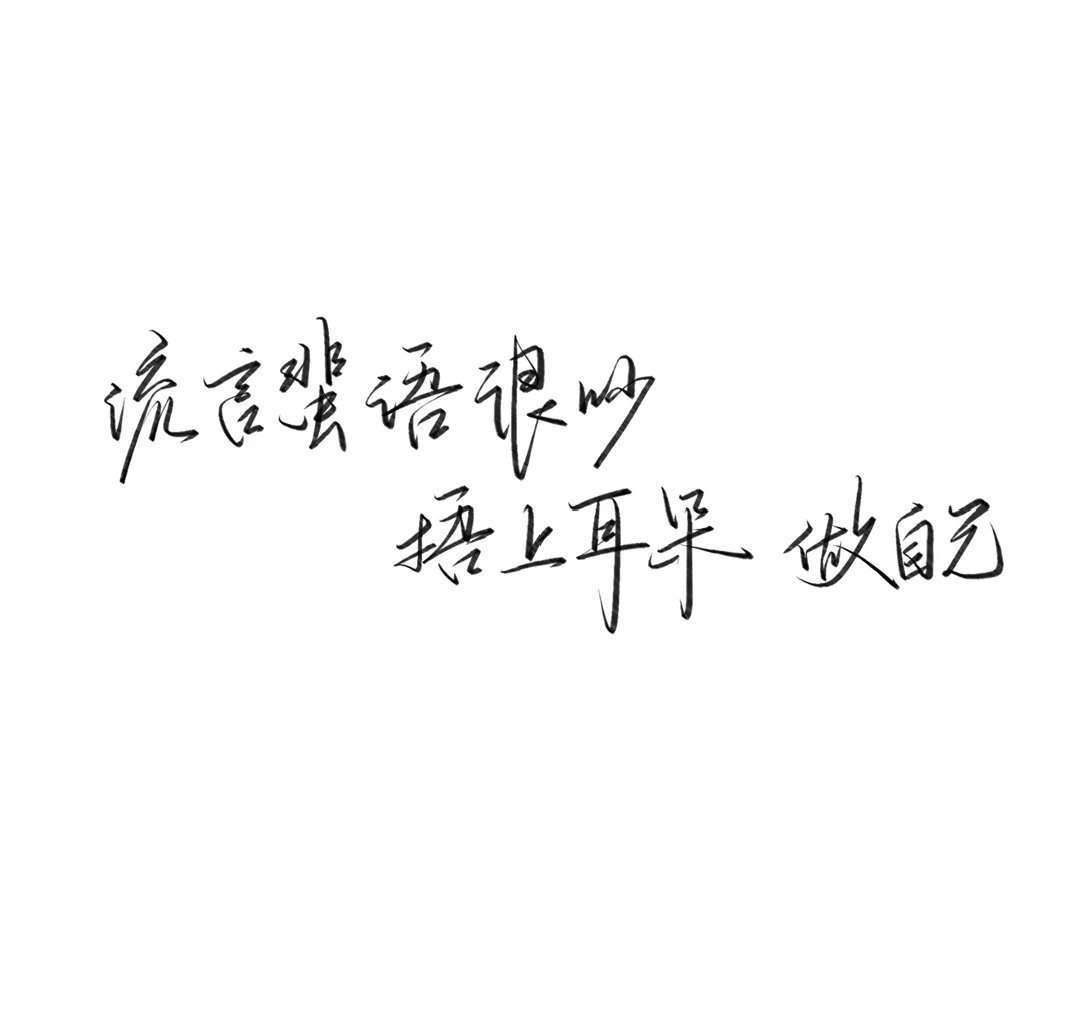 流言蜚语很吵
捂上耳朵 做自己